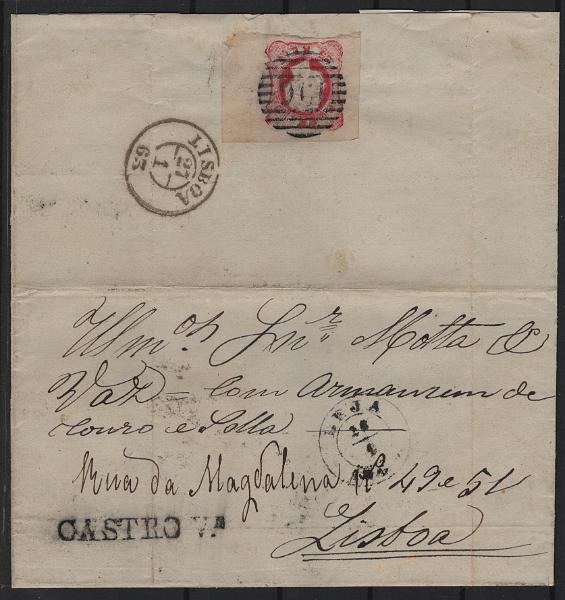 LISBOA
27
1
63
Illmos. Snr. Motta &
Vaz — Com Armanzem de
Couro e Solla
BEJA
26
1
Rua da Magdalena No. 49 e 51
CASTRO V.A
Lisboa